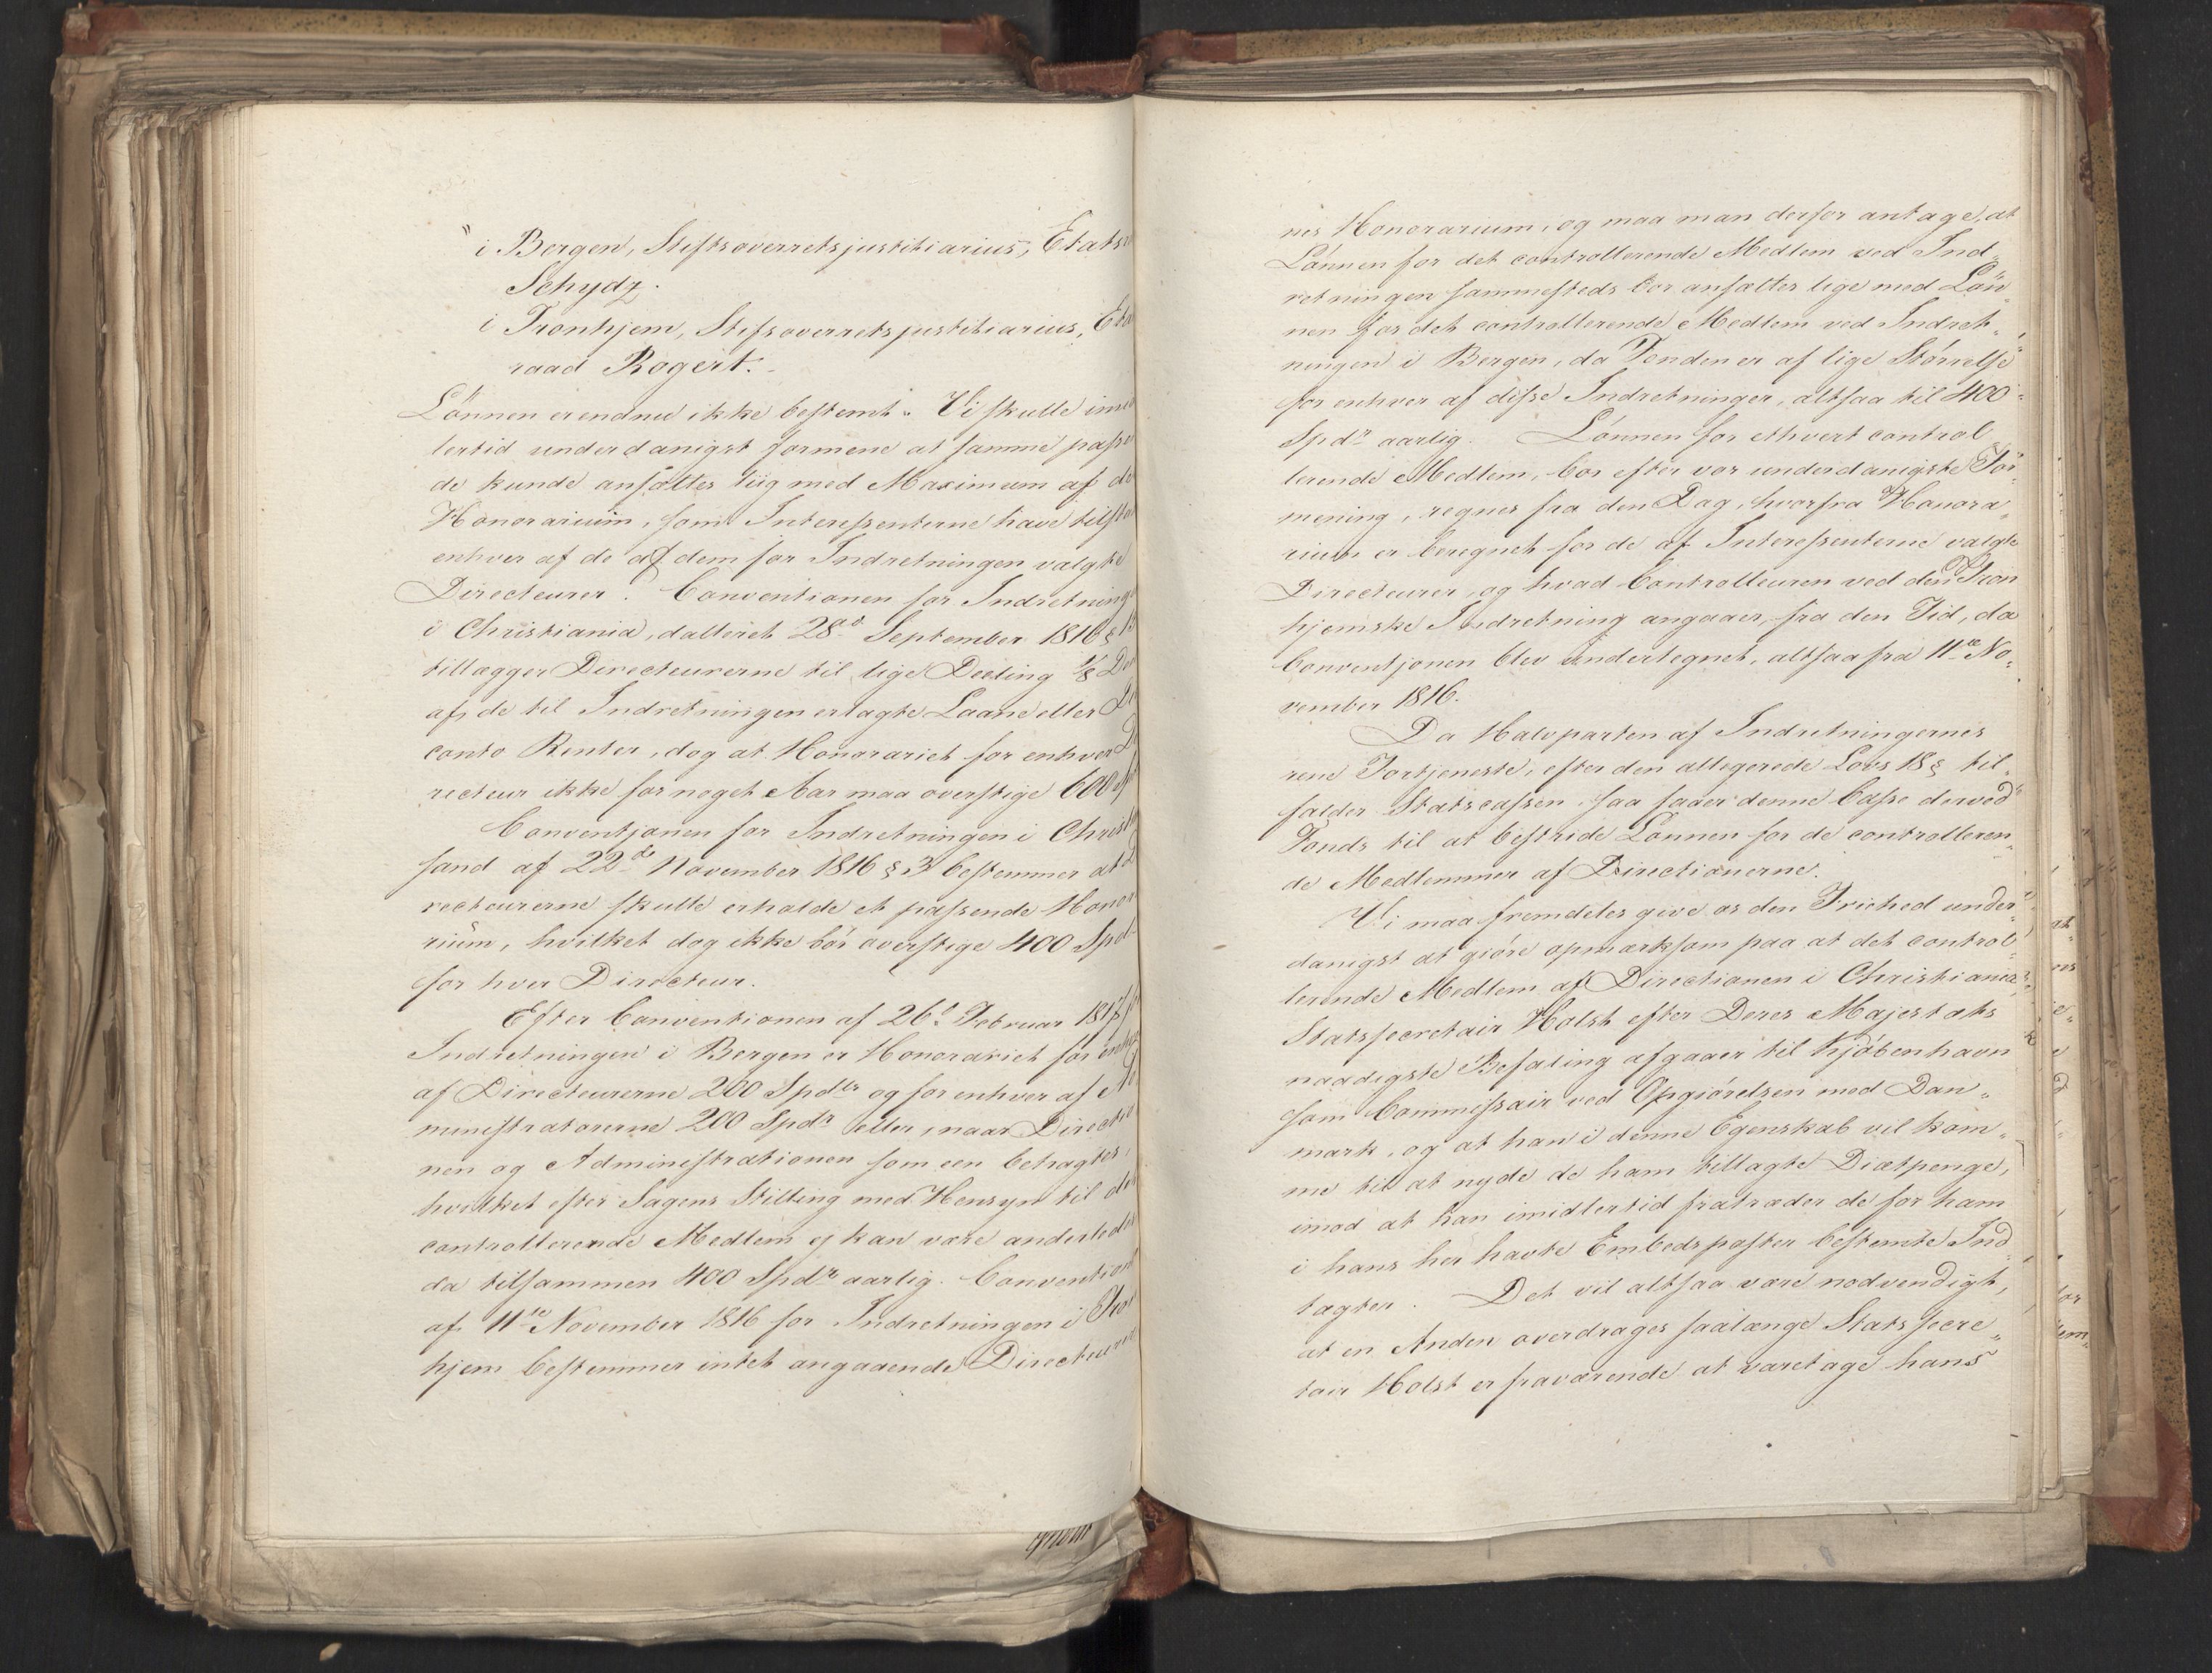 " i Bergen, Stiftsoverretsjustitiarius, Etats
Schydz.
i Tronhjem, Stifsoverretsjustitiarius, Eta
raad Rogert.
Lønnen er endnu ikke bestemt. Vi skulle imid
lertid underdanigst formene at samme passe
de kunde ansættes liig med Maximum af de
Honorarium, som Interessenterne have tilsta
enhver af de af dem for Indretningen valgte
Directeurer. Conventionen for Indretninge
i Christiania, datteret 28de September 1816 §
tillægger Directeurerne til lige Deeling 1/8 De
af de til Indretningen erlagte Laane eller Di
conto Renter, dog at Honorariet for enhver D
recteur ikke for noget Aar maa overstige 600
Conventjonen for Indretningen i Christi
sand af 22de November 1816 § 3 bestemmer at D
recteurerne skulle erholde et passende Honor
rium, hvilket dog ikke bør overstige 400 Spd
for hver Directeur.
Efter Conventionen af 26de Februar 1817 f
Indretningen i Bergen er Honorariet for enhv
af Directeurerne 200 Spdlr og for enhver af Ad
ministratorerne 200 Spdr eller, naar Directio
nen og Administrationen som een betragtes,
hvilket efter Sagens Stilling med Hensyn til det
controllerende Medlem ej kan være anderledes
da tilsammen 400 Spdr aarlig. Convention
af 11te November 1816 for Indretningen i Tron
hjem bestemmer intet angaaende Directeurer
nes Honorarium, og maa man derfor antage, at
Lønnen for det controllerende Medlem ved Ind-
retningen sammesteds bør ansættes lige med Løn
nen for det controllerende Medlem ved Indret-
ningen i Bergen, da Fonden er af lige Størrelse
for enhver af disse Indretninger, altsaa til 400
Spdr aarlig. Lønnen for ethvert control
lerende Medlem, bør efter vor underdanigste For
mening, regnes fra den Dag, hvorfra Honora
rium er beregnet for de af Interessenterne valgte
Directeurer, og hvad Controlleuren ved den Tron
hjemske Indretning angaaer, fra den Tid, da
Conventjonen blev undertegnet, altsaa fra 11te No-
vember 1816.
Da Halvparten af Indretningernes
rene Fortjeneste, efter den allegerede Lovs 18 § til-
falder Statscassen, saa faaer denne Casse derved
Fonds til at bestride Lønnen for de controlleren-
de Medlemmer af Directionerne.
Vi maa fremdeles give os den Friehed under-
danigst at giøre opmærksom paa at det control
lerende Medlem af Directionen i Christiania,
Statssecretair Holst efter Deres Majestæts
naadigste Befaling afgaaer til Kjøbenhavn
som Commissair ved Opgiørelsen med Dan-
mark, og at han i denne Egenskab vil kom-
me til at nyde de ham tillagte Diætpenge,
imod at han imidlertid fratræder de for ham
i hans her havte Embedsposter bestemte Ind
tægter. Det vil altsaa være nødvendigt,
at en Anden overdrages saalænge Statssecre-
tair Holst er fraværende at varetage hans